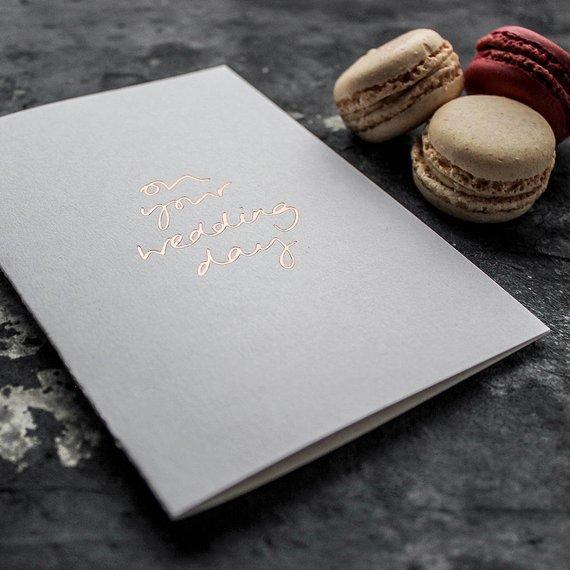 on
your
wedding
day